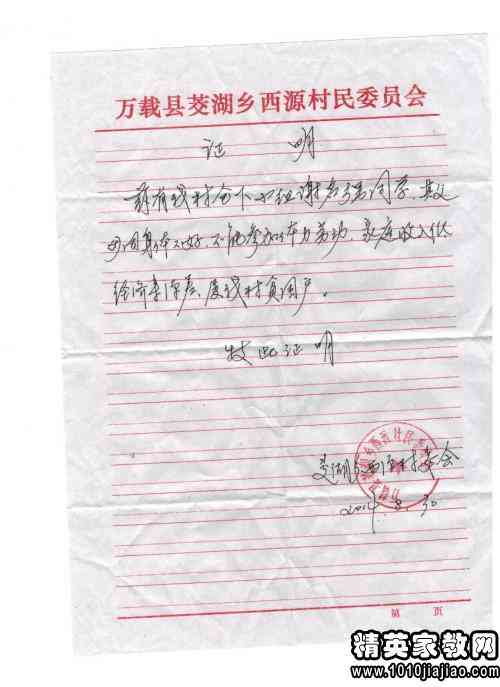 万载县茭湖乡西源村民委员会
证 明
兹有我村合下小组谢 同学,其父
母因身体不好,不能参加体力劳动,家庭收入低
经济来源 ,属我村贫困户。
特此证明
茭湖乡西源村委会
2014.8.30
第 页
精英家教网
www.1010jiajiao.com